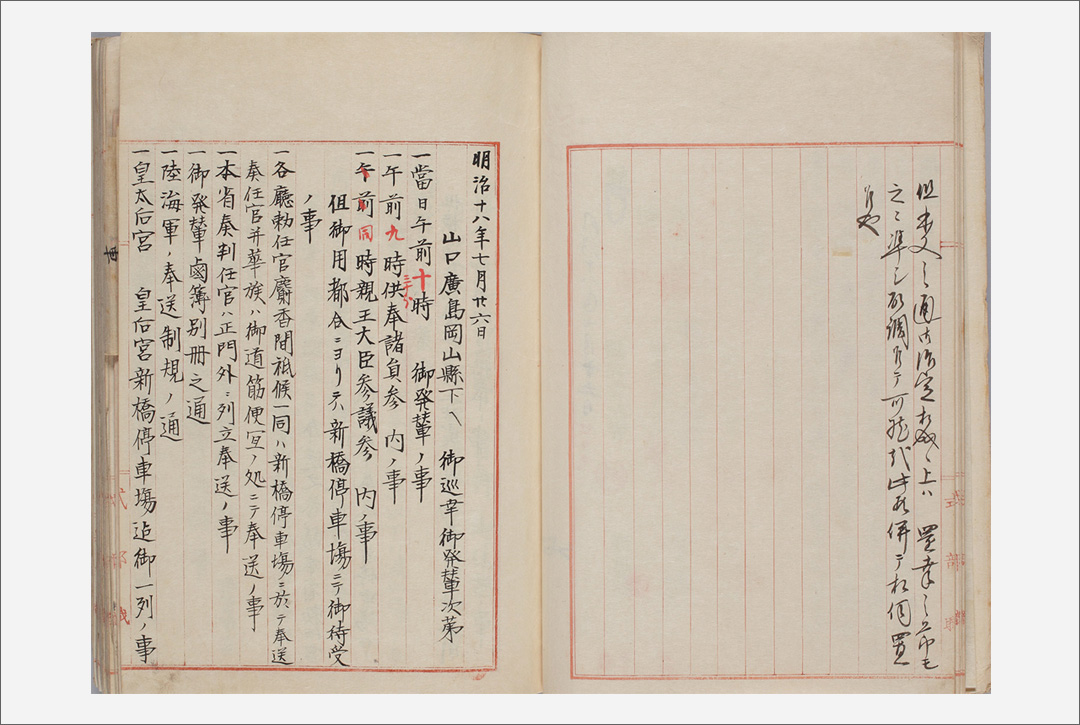 但本文之通御治定相成候上ハ還幸之節モ
之ニ準シ取調方テ可然哉此段併テ相伺置
候也
明治十八年七月廿六日
山口廣島岡山縣下ヘ 御巡幸御発輦次第
一當日午前十時三十分 御発輦ノ事
一午前九時供奉諸員参 内ノ事
一午前同時親王大臣参議参 内ノ事
但御用都合ニヨリテハ新橋停車塲ニテ御待受
ノ事
一各廳勅任官麝香間祗候一同ハ新橋停車塲ニ於テ奉送
奏任官并華族ハ御道筋便宜ノ処ニテ奉送ノ事
一本省奏判任官ハ正門外ニ列立奉送ノ事
一御発輦鹵簿別冊之通
一陸海軍ノ奉送制規ノ通
一皇太后宮 皇后宮新橋停車塲迠御一列ノ事
式部職